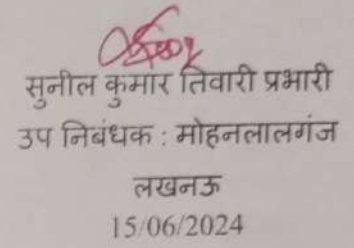 सुनील कुमार तिवारी प्रभारी
उप निबंधक : मोहनलालगंज
लखनऊ
15/06/2024